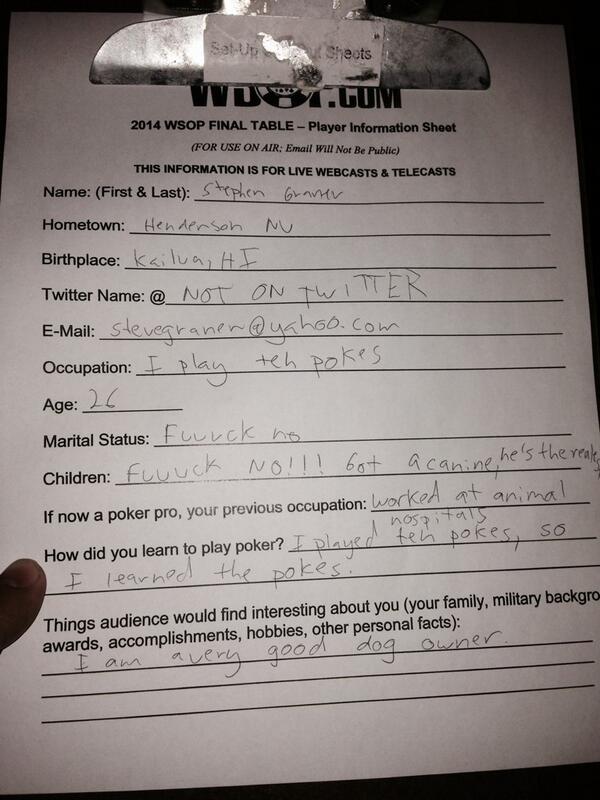 Set-Up Sheets
WSOP.COM
2014 WSOP FINAL TABLE – Player Information Sheet
(FOR USE ON AIR; Email Will Not Be Public)
THIS INFORMATION IS FOR LIVE WEBCASTS & TELECASTS
Name: (First & Last): Stephen Graner
Hometown: Henderson NV
Birthplace: Kailua, HI
Twitter Name: @ NOT ON TWITTER
E-Mail: stevegraner@yahoo.com
Occupation: I play teh pokes
Age: 26
Marital Status: Fuuuck no
Children: Fuuuck NO!!! Got a canine, he's the reale
If now a poker pro, your previous occupation: worked at animal
hospitals
How did you learn to play poker? I played teh pokes, so
I learned the pokes.
Things audience would find interesting about you (your family, military backgro
awards, accomplishments, hobbies, other personal facts):
I am a very good dog owner.